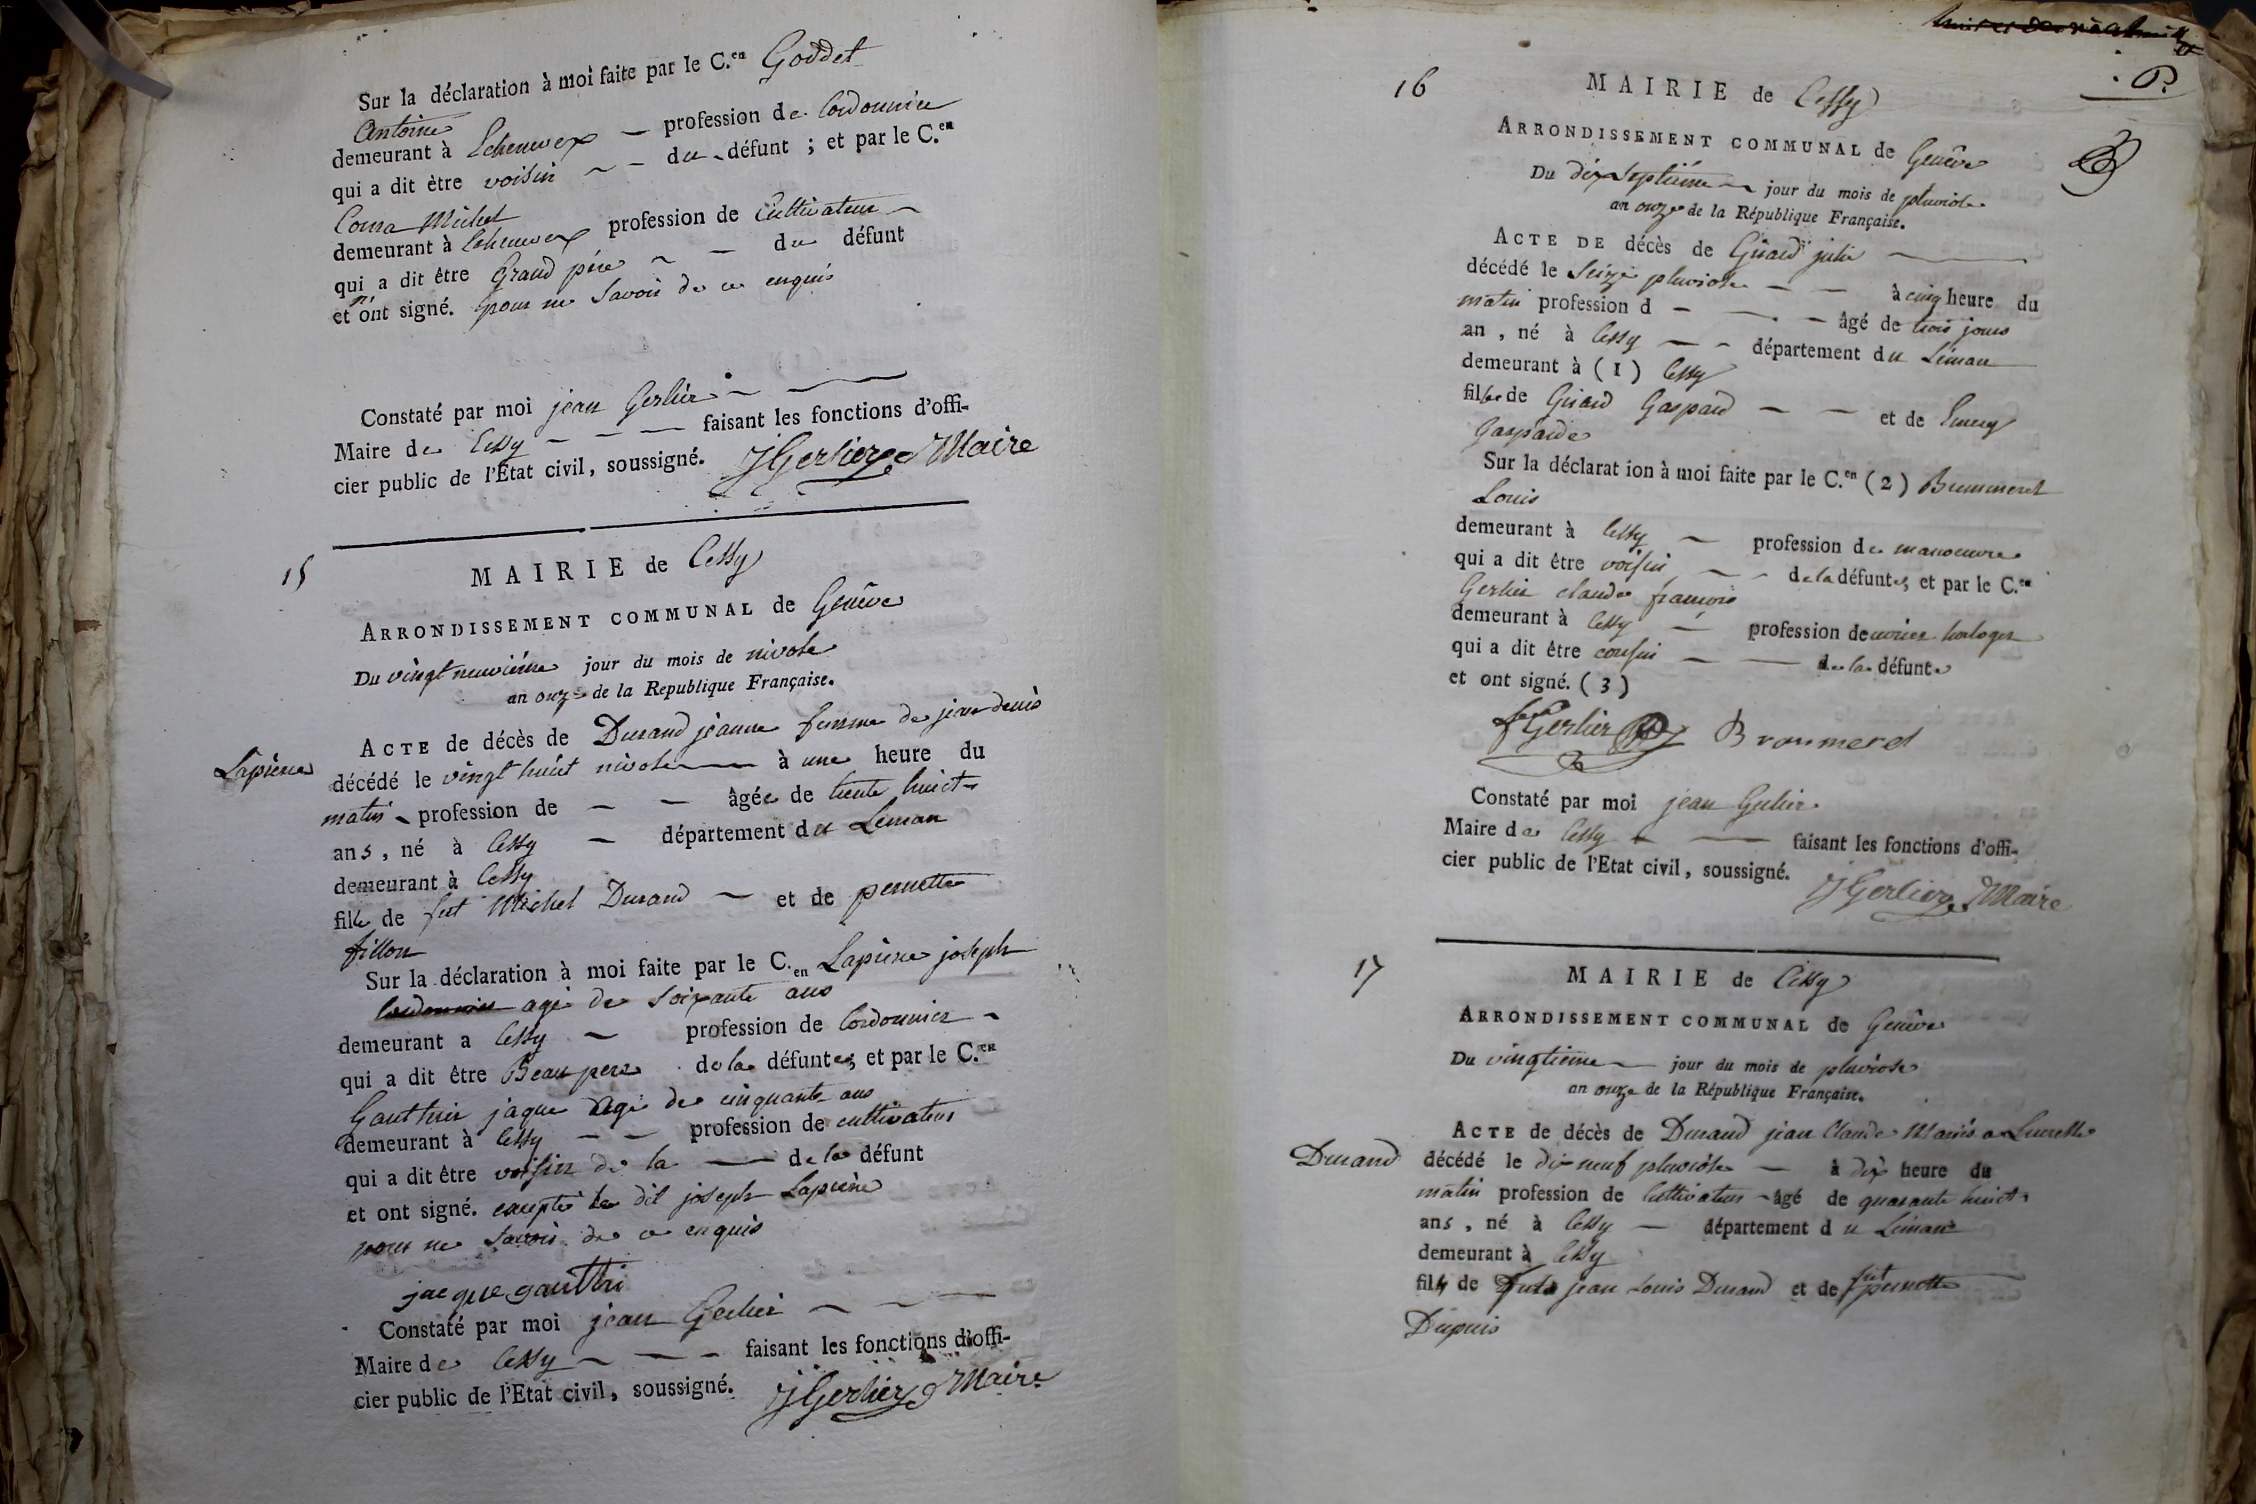 Sur la déclaration à moi faite par le C.en Goddet
Antoine
demeurant à Echenevex profession de Cordonnier
qui a dit être voisin du défunt ; et par le C.en
Michel
demeurant à Echenevex profession de Cultivateur
qui a dit être Grand père du défunt
et n'ont signé. pour ne Savoir de ce enquis
Constaté par moi jean Gerlier
Maire de Cessy faisant les fonctions d'offi-
cier public de l'État civil, soussigné. J Gerlier Maire
15
MAIRIE de Cessy
ARRONDISSEMENT COMMUNAL de Genêve
Du vingt neuvième jour du mois de nivose
an onze de la Republique Française.
ACTE de décès de Durand jeanne femme de jean denis
Lapierre
décédé le vingt huit nivose à une heure du
matin profession de âgée de trente huict
ans, né à Cessy département du Léman
demeurant à Cessy
fille de fut Michel Durand et de pernette
fillon
Sur la déclaration à moi faite par le C.en Lapierre joseph
agé de soixante ans
demeurant a Cessy profession de Cordonnier
qui a dit être Beau pere de la défunte, et par le C.en
Gauthier jaque agé de cinquante ans
demeurant à Cessy profession de cultivateur
qui a dit être voisin de la de la défunt
et ont signé. excepté le dit joseph Lapierre
pour ne savoir de ce enquis
jacque gauthri
Constaté par moi jean Gerlier
Maire de Cessy faisant les fonctions d'offi-
cier public de l'Etat civil, soussigné. J Gerlier Maire
16
MAIRIE de Cessy
ARRONDISSEMENT COMMUNAL de Genêve
Du dix septième jour du mois de pluviose
an onze de la République Française.
ACTE DE décès de Girard julie
décédé le Seize pluviose à cinq heure du
matin profession d âgé de trois jours
an, né à Cessy département du Léman
demeurant à (1) Cessy
fille de Girard Gaspard et de Emery
Gasparde
Sur la déclarat ion à moi faite par le C.en (2) Brummerel
Louis
demeurant à Cessy profession de manoeuvre
qui a dit être voisin de la défunte, et par le C.en
Gerlier claude francois
demeurant à Cessy profession de ouvrier horloger
qui a dit être cousin de la défunte
et ont signé. (3)
Gerlier Broumerel
Constaté par moi jean Gerlier
Maire de Cessy faisant les fonctions d'offi-
cier public de l'Etat civil, soussigné.
J Gerlier Maire
17
MAIRIE de Cessy
ARRONDISSEMENT COMMUNAL de Genêve
Du vingtieme jour du mois de pluviose
an onze de la République Française.
ACTE de décès de Durand jean Claude Mariés a
Durand
décédé le dix neuf pluviose à dix heure du
matin profession de Cultivateur âgé de quarante huict
ans, né à Cessy département du Léman
demeurant à Cessy
fils de fut jean Louis Durand et de fut pernette
Dupuis